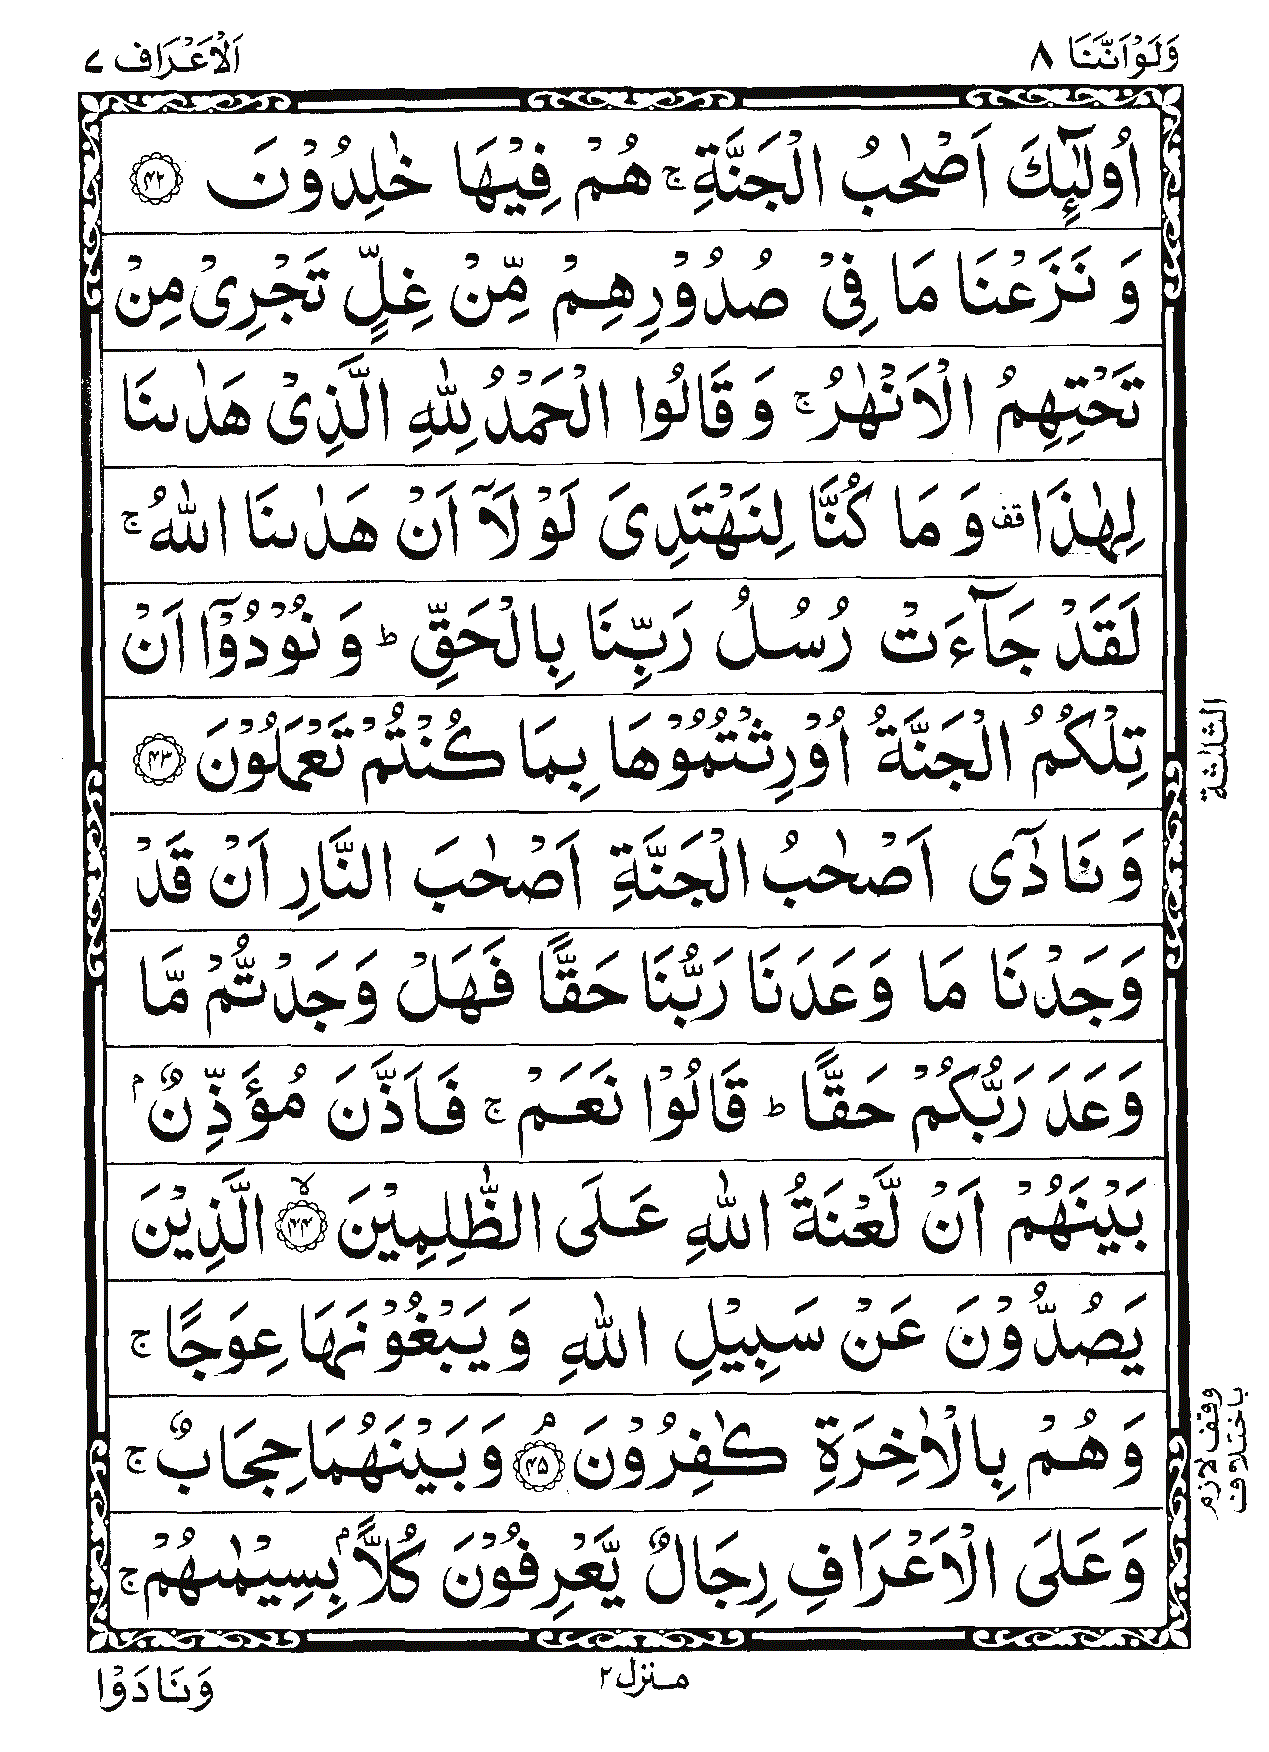 وَلَوْاَنَّنَا ٨
اَلْاَعْرَاف ٧
اُولٰٓئِكَ اَصْحٰبُ الْجَنَّةِ ۚ هُمْ فِيْهَا خٰلِدُوْنَ ﴿۴۲﴾
وَ نَزَعْنَا مَا فِيْ صُدُوْرِهِمْ مِّنْ غِلٍّ تَجْرِيْ مِنْ
تَحْتِهِمُ الْاَنْهٰرُ ۚ وَ قَالُوا الْحَمْدُ لِلّٰهِ الَّذِيْ هَدٰىنَا
لِهٰذَا قف وَ مَا كُنَّا لِنَهْتَدِيَ لَوْ لَاۤ اَنْ هَدٰىنَا اللّٰهُ ۚ
لَقَدْ جَآءَتْ رُسُلُ رَبِّنَا بِالْحَقِّ ؕ وَ نُوْدُوْۤا اَنْ
تِلْكُمُ الْجَنَّةُ اُوْرِثْتُمُوْهَا بِمَا كُنْتُمْ تَعْمَلُوْنَ ﴿۴۳﴾
وَ نَادٰۤى اَصْحٰبُ الْجَنَّةِ اَصْحٰبَ النَّارِ اَنْ قَدْ
وَجَدْنَا مَا وَعَدَنَا رَبُّنَا حَقًّا فَهَلْ وَجَدْتُّمْ مَّا
وَعَدَ رَبُّكُمْ حَقًّا ؕ قَالُوْا نَعَمْ ۚ فَاَذَّنَ مُؤَذِّنٌۢ
بَيْنَهُمْ اَنْ لَّعْنَةُ اللّٰهِ عَلَى الظّٰلِمِيْنَ ﴿۴۴﴾ ۙ الَّذِيْنَ
يَصُدُّوْنَ عَنْ سَبِيْلِ اللّٰهِ وَ يَبْغُوْنَهَا عِوَجًا ۚ
وَهُمْ بِالْاٰخِرَةِ كٰفِرُوْنَ ﴿۴۵﴾ ۘ وَبَيْنَهُمَا حِجَابٌ ۚ
وَعَلَى الْاَعْرَافِ رِجَالٌ يَّعْرِفُوْنَ كُلًّاۢ بِسِيْمٰىهُمْ ۚ
الثلثة
وقف لازم
باختلاف
منزل ٢
وَنَادَوْا